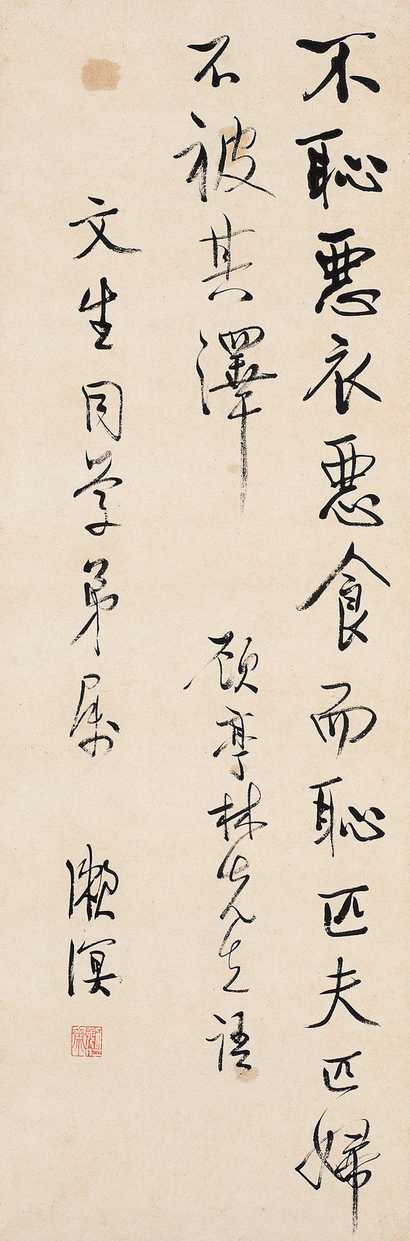 不恥惡衣惡食而恥匹夫匹婦
不被其澤　顧亭林先生語
文生同學弟屬　漱溟